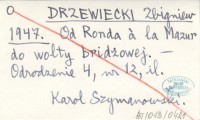 DRZEWIECKI Zbigniew
1947. Od Ronda à la Mazur
do wolty bridżowej. —
Odrodzenie 4, nr 12, il.
Karol Szymanowski.